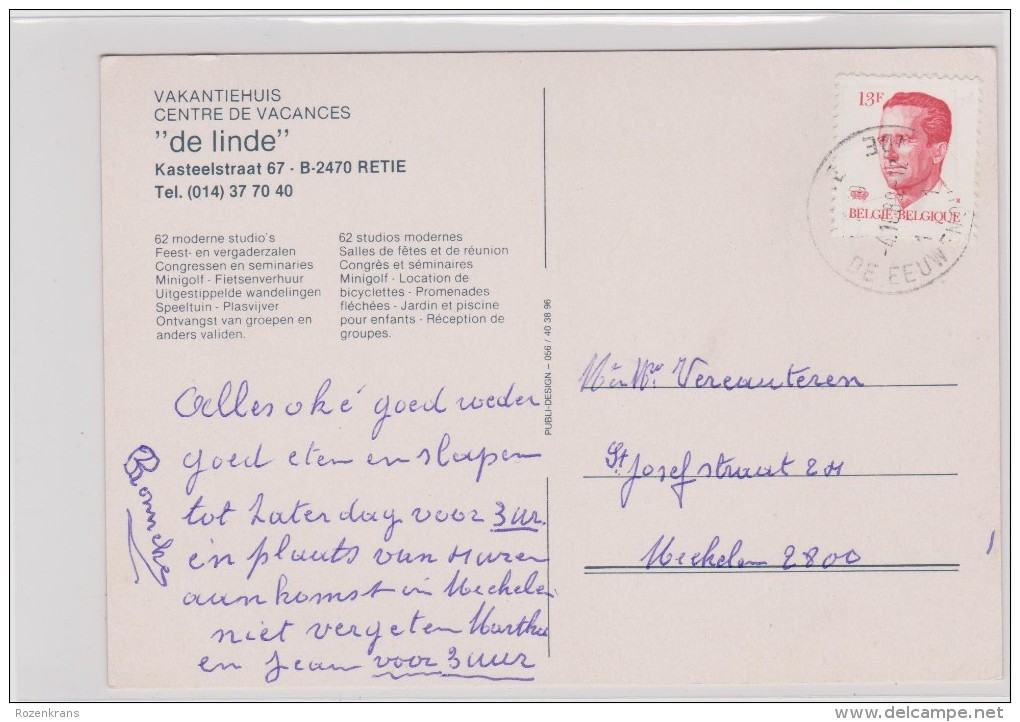 VAKANTIEHUIS
CENTRE DE VACANCES
"de linde"
Kasteelstraat 67 - B-2470 RETIE
Tel. (014) 37 70 40
62 moderne studio's
Feest- en vergaderzalen
Congressen en seminaries
Minigolf - Fietsenverhuur
Uitgestippelde wandelingen
Speeltuin - Plasvijver
Ontvangst van groepen en
anders validen.
62 studios modernes
Salles de fêtes et de réunion
Congrès et séminaires
Minigolf - Location de
bicyclettes - Promenades
fléchées - Jardin et piscine
pour enfants - Réception de
groupes.
PUBLI-DESIGN – 056 / 40 38 96
13F
BELGIË-BELGIQUE
DE EEUW
Alles oké goed weder
goed eten en slapen
tot Zaterdag voor 3 ur.
in plaats van
aankomst in Mechelen
niet vergeten Martha
en Jean voor 3 uur
Vercauteren
St Josefstraat
Mechelen 2800
Rozenkrans
delcampe.net